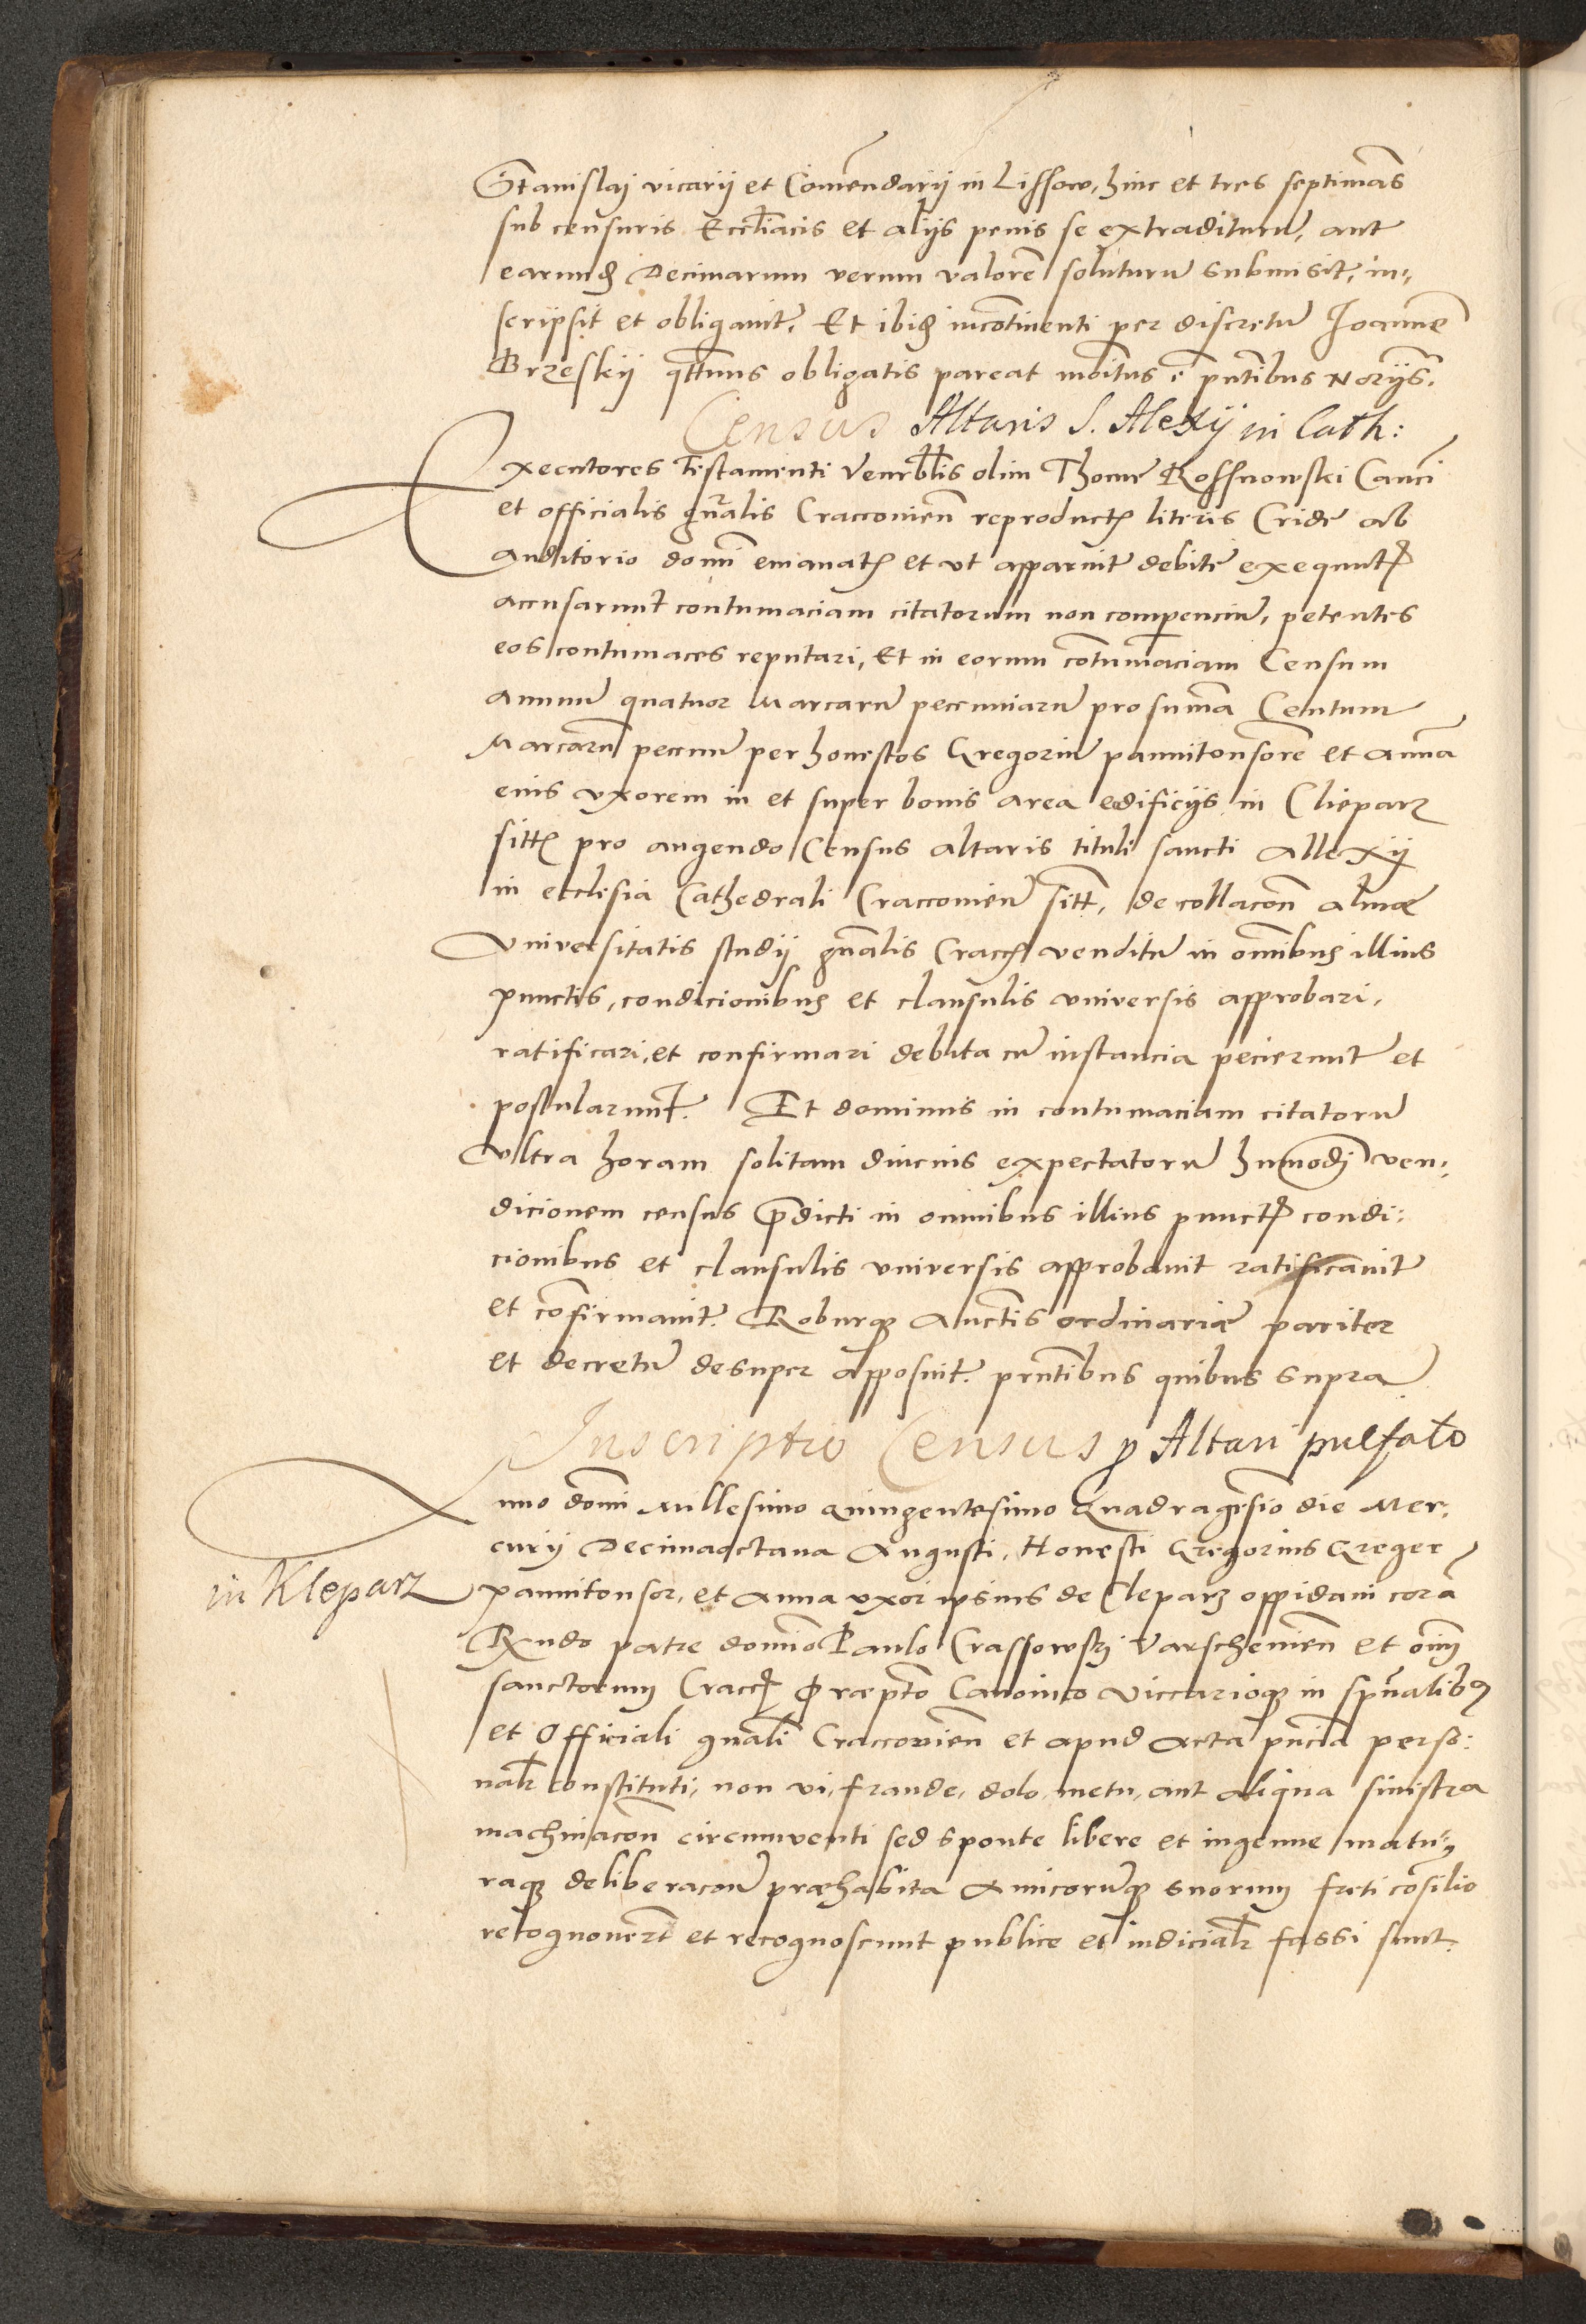 Stanislaj vicarij et Comendarij in Lissow, hinc et tres septimas
sub censuris Ecclīacis et alijs penis se extraditurū, aut
earund Decimarum verum valorē soluturū submisit, in„
scripsit et obligavit. Et ibid incōtinenti per discretū Joannē
Brzeskij qtenus obligatis pareat mōitus ē pntibus Norijs.
Census Altaris S. Alexij in Cath:
Executores Testamenti Venrblis olim Thome Rossnowski Canci
et officialis gnalis Cracovien reproductis literis Cride ab
auditorio domī emanatis et ut apparuit debite exequutis
accusarunt contumaciam citatorum non comparenciū, petentes
eos contumaces reputari, Et in eorum cōtumaciam Censum
annuū quatuor Marcarū pecuniarū pro sūma Centum
Marcarū pecuniē per honestos Gregoriū pannitonsorē et Annā
eius uxorem in et super bonis area edificijs in Clepar
sitis pro augendo Census altaris tituli sancti Allexij
in ecclesia Cathedrali Cracovien sitt, de collacōn almæ
Universitatis studij gnalis Cracc venditū in omībus illius
punctis, condicionibus et clausulis universis approbari,
ratificari, et confirmari debita cū instancia pecierunt et
postularunt. Et dominus in contumaciam citatorū
ultra horam solitam diucius expectatorū humodi ven„
dicionem census pdicti in omnibus illius punctis condi:
cionibus et clausulis universis approbavit ratificavit
et cōfirmavit. Roburque Auctis ordinariæ pariter
et decretū desuper apposuit. pntibus quibus supra
Inscriptio Census p Altari præfato
Anno domī Millesimo Quingentesimo Quadragesio die Mer„
curij Decimaoctava Augusti, Honesti Gregorius Greger
in Kleparz
pannitonsor, et Anna uxor ipsius de Cleparz oppidani corā
Rndo patre domino Paulo Crassowski Varschevien et oīm
sanctorum Cracc præpto Canonico Viccarioque in spūalibus
et Officiali gnali Cracovien et apud Acta pncia perso:
nalr constituti, non vi, fraude, dolo, metu, aut aliqua sinistra
machinacōn circumventi sed sponte libere et ingenue matu„
raque deliberacōn præhabita Amicorūque suorum freti cōsilio
recognovert et recognoscunt publice et iudicialr fassi sunt.